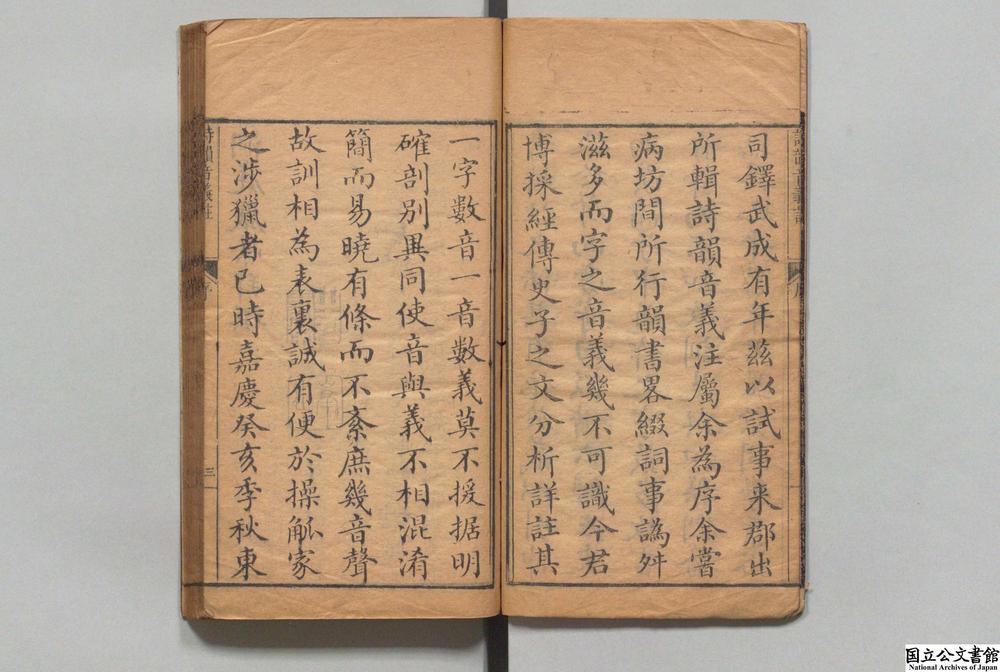 司鐸武成有年茲以試事来郡出
所輯詩韻音義注屬余為序余嘗
病坊間所行韻書畧綴詞事譌舛
滋多而字之音義幾不可識今君
博採經傳史子之文分析詳註其
一字數音一音數義莫不援据明
確剖別異同使音與義不相混淆
簡而易曉有條而不紊庶幾音聲
故訓相為表裏誠有便於操觚家
之涉獵者已時嘉慶癸亥季秋東
詩韻音義註
序
三
国立公文書館
National Archives of Japan